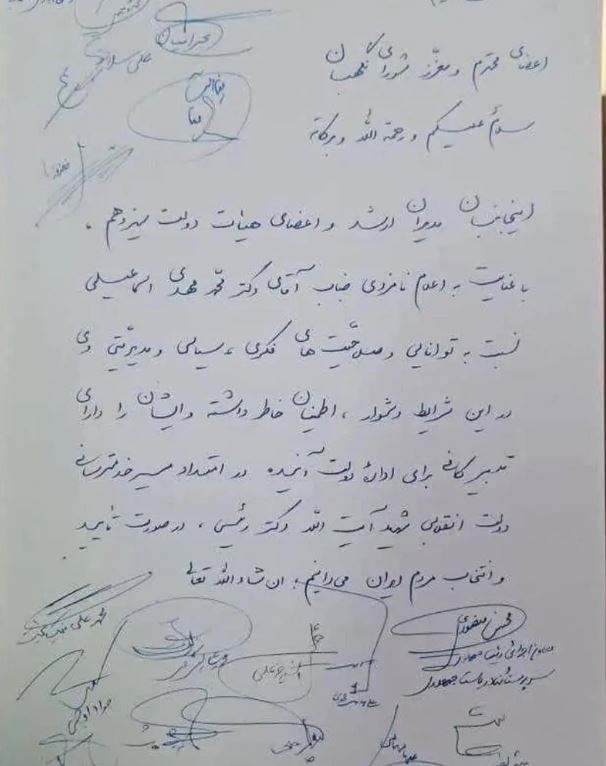 اعضای محترم و معزّز شورای نگهبان
سلام علیکم و رحمة الله و برکاته
اینجانبان مدیران ارشد و اعضای هیأت دولت سیزدهم،
با عنایت به اعلام نامزدی جناب آقای دکتر محمد مهدی اسماعیلی
نسبت به توانایی و صلاحیّت های فکری، سیاسی و مدیریّتی وی
در این شرایط دشوار، اطمینان خاطر داشته و ایشان را دارای
تدبیر کافی برای ادارهٔ دولت آینده در امتداد مسیر خدمترسانی
دولت انقلابی شهید آیت الله دکتر رئیسی، در صورت تأیید
و انتخاب مردم ایران می‌دانیم؛ ان شاء الله تعالی
محسن منصوری
معاون اجرائی رئیس جمهور
سرپرست نهاد ریاست جمهوری